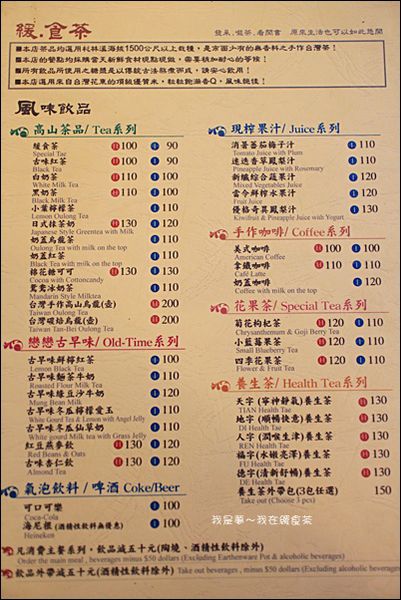 緩.食茶
發呆.啜茶.看閒書　原來生活也可以如此悠閒
■本店茶品均選用杉林溪海拔1500公尺以上栽種，是市面少有的無香料之手作台灣茶！
■本店的餐點均採購當天新鮮食材現點現做，需要稍加耐心的等候！
■所有飲品所使用之糖漿是以傳統古法熬煮而成，請安心飲用！
■本店選用來自台灣花東的頂級優質米，粒粒飽滿香Q，風味絕佳！
風味飲品
高山茶品/ Tea系列
緩食茶 H100 I 90
Special Tae
古味紅茶 H100 I 90
Black Tea
白奶茶 H110 I 100
White Milk Tea
黑奶茶 H110 I 100
Black Milk Tea
小葉檸檬茶 I 110
Lemon Oulong Tea
日式抹茶奶 H130 I 120
Japanese Style Greentea with Milk
奶蓋烏龍茶 I 110
Oulong Tea with milk on the top
奶蓋紅茶 I 110
Black Tea with milk on the top
棉花糖可可 H130 I 130
Cocoa with Cottoncandy
鴛鴦冰奶茶 I 110
Mandarin Style Milktea
台灣手作高山烏龍(壺) H200
Taiwan Oulong Tea
台灣碳焙烏龍(壺) H200
Taiwan Tan-Bei Oulong Tea
戀戀古早味/ Old-Time系列
古早味鮮檸紅茶 I 100
Lemon Black Tea
古早味麵茶牛奶 I 110
Roasted Flour Milk Tea
古早味綠豆沙牛奶 I 120
Mung Bean Milk
古早味冬瓜檸檬愛玉 I 110
White Gourd Tea & Lemon with Angel Jelly
古早味冬瓜仙草奶 I 110
White gourd Milk tea with Grass Jelly
紅豆燕麥奶 H130 I 120
Red Beans & Oats
古味杏仁飲 H130 I 120
Almond Tea
氣泡飲料 / 啤酒 Coke/Beer
可口可樂 I 100
Coca-Cola
海尼根 (酒精性飲料無優惠) I 100
Heineken
現榨果汁/ Juice系列
消暑蕃茄梅子汁 I 110
Tomato Juice with Plum
迷迭香草鳳梨汁 I 110
Pineapple Juice with Rosemary
新纖綜合蔬果汁 I 120
Mixed Vegetables Juice
當令鮮榨水果汁 I 120
Fruit Juice
優格奇異鳳梨汁 I 130
Kiwifruit & Pineapple Juice with Yogurt
手作咖啡/ Coffee系列
美式咖啡 H100 I 100
American Coffee
拿鐵咖啡 H110 I 110
Café Latte
奶蓋咖啡 I 120
Coffee with milk on the top
花果茶/ Special Tea系列
菊花枸杞茶 H120 I 110
Chrysanthemum & Goji Berry Tea
小藍莓果茶 H120 I 110
Small Blueberry Tea
四季花果茶 H120 I 110
Flower & Fruit Tea
養生茶/ Health Tea系列
天字 (寧神靜氣)養生茶 H130
TIAN Health Tae
地字 (順暢快意)養生茶 H130
DI Health Tae
人字 (潤喉生津)養生茶 H130
REN Health Tae
福字 (水嫩亮澤)養生茶 H130
FU Health Tae
德字 (清新舒暢)養生茶 H130
DE Health Tae
養生茶外帶包(3包任選) 150
Take out (Choose 3 pcs)
我是夢～我在緩食茶
凡消費主餐系列，飲品減五十元(陶燒、酒精性飲料除外)
Order the main meal , beverages minus $50 dollars (Excluding Earthenware Pot & alcoholic beverages)
飲品外帶減五十元(酒精性飲料除外) Take out beverages , minus $50 dollars (Excluding alcoholic beverages)